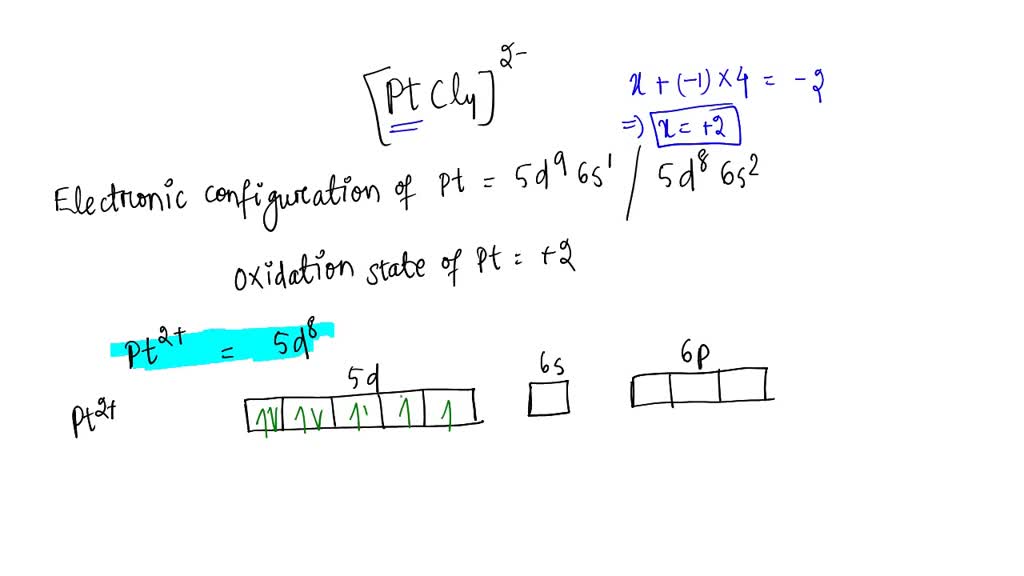 [PtCl4]2-
x + (-1) × 4 = -2
=) x = +2
Electronic configuration of Pt = 5d9 6s1 / 5d8 6s2
Oxidation state of Pt = +2
Pt2+ = 5d8
5d 6s 6p
Pt2+ 1V 1V 1' 1 1